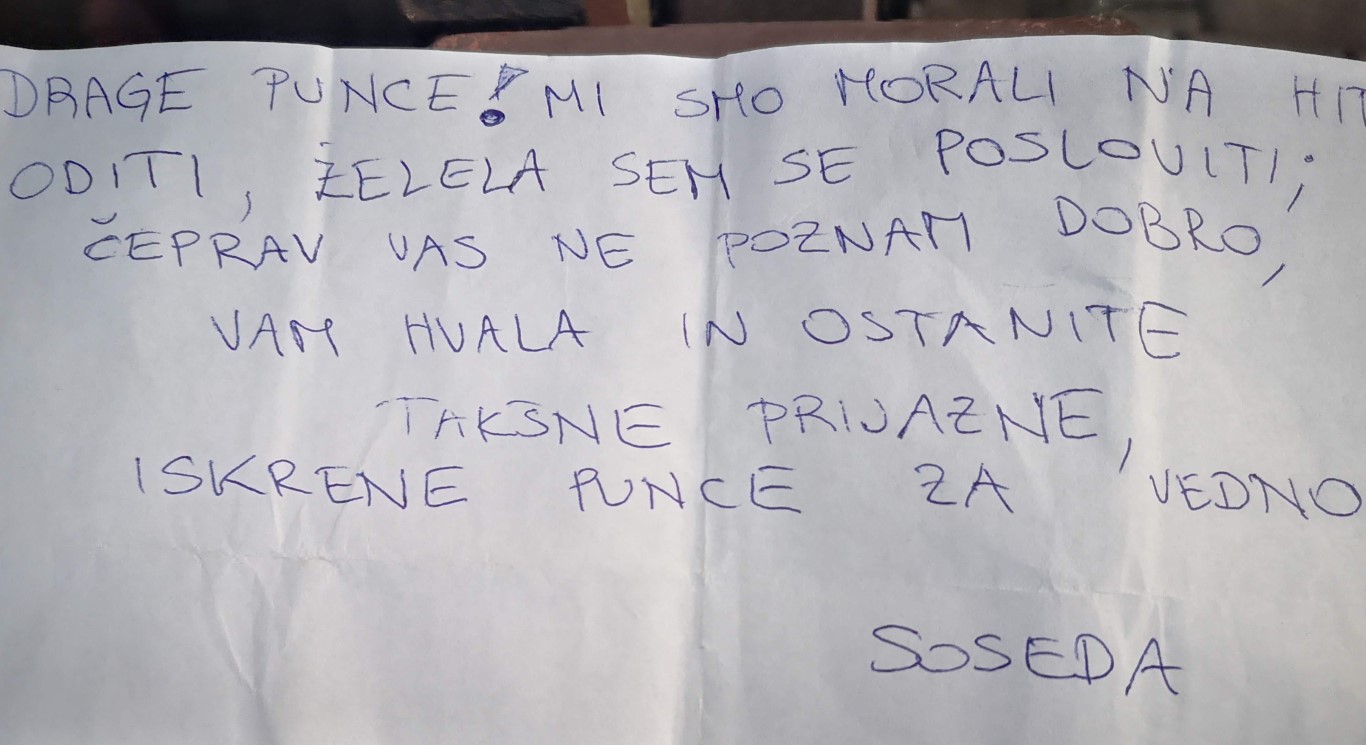 DRAGE PUNCE! MI SMO MORALI NA HIT
ODITI, ŻELELA SEM SE POSLOVITI;
ČEPRAV VAS NE POZNAM DOBRO,
VAM HVALA IN OSTANITE
TAKŠNE PRIJAZNE,
ISKRENE PUNCE ZA VEDNO
SOSEDA